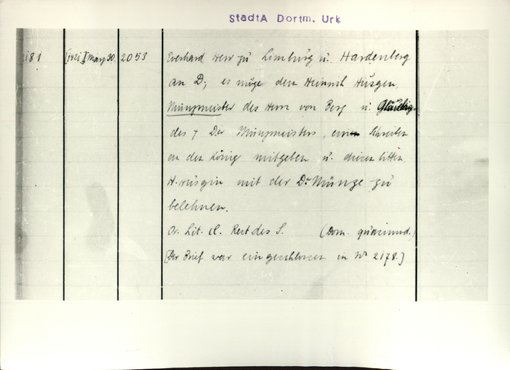 StadtA Dortm. Urk
181 2053 Everhard Herr zu Limburg u. Hardenberg
an D; es möge dem Heinrich Husgen,
Münzmeister des Herrn von Berg u. Gläubig.
des 7 Der Münzmeisters, ein Schreiben
an den König mitgeben u. diesen bitten
H. Husgin mit der Dr Münze zu
belehnen.
Or. Lit. cl. Rest des S. (Dom. quasimod.
(Der Brief war eingeschlossen in No 2178.)